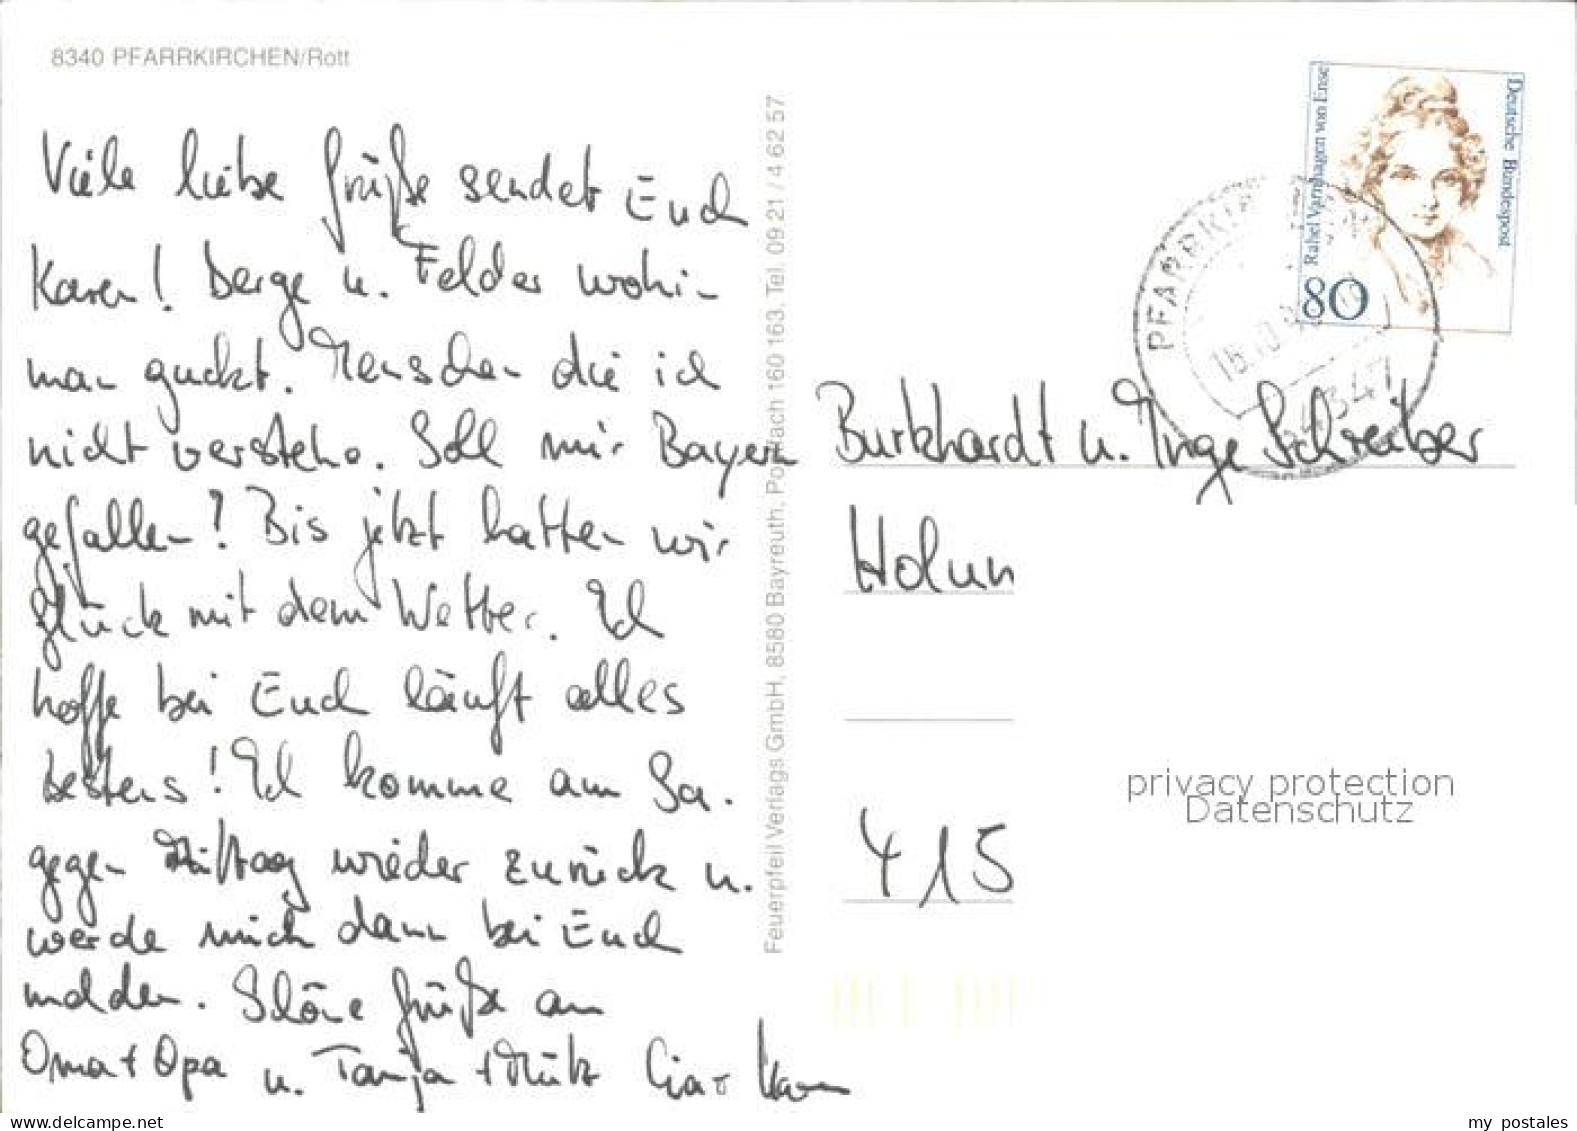 8340 PFARRKIRCHEN/Rott
Viele liebe Grüße sendet Euch
Karen! Berge u. Felder wohin
man guckt. Menschen die ich
nicht verstehe. Soll mir Bayern
gefallen? Bis jetzt hatten wir
Glück mit dem Wetter. Ich
hoffe bei Euch läuft alles
bestens! Ich komme am Sa.
gegen Mittag wieder zurück u.
werde mich dann bei Euch
melden. Schöne Grüße an
Oma + Opa u. Tanja + Mütz Ciao Karen
Feuerpfeil Verlags GmbH, 8580 Bayreuth, Postfach 160 163, Tel. 09 21 / 4 62 57
Rahel Varnhagen von Ense
Deutsche Bundespost
80
PFARRKIR
16.10.9
84347
Burkhardt u. Inge Schreiber
415
privacy protection
Datenschutz
my postales